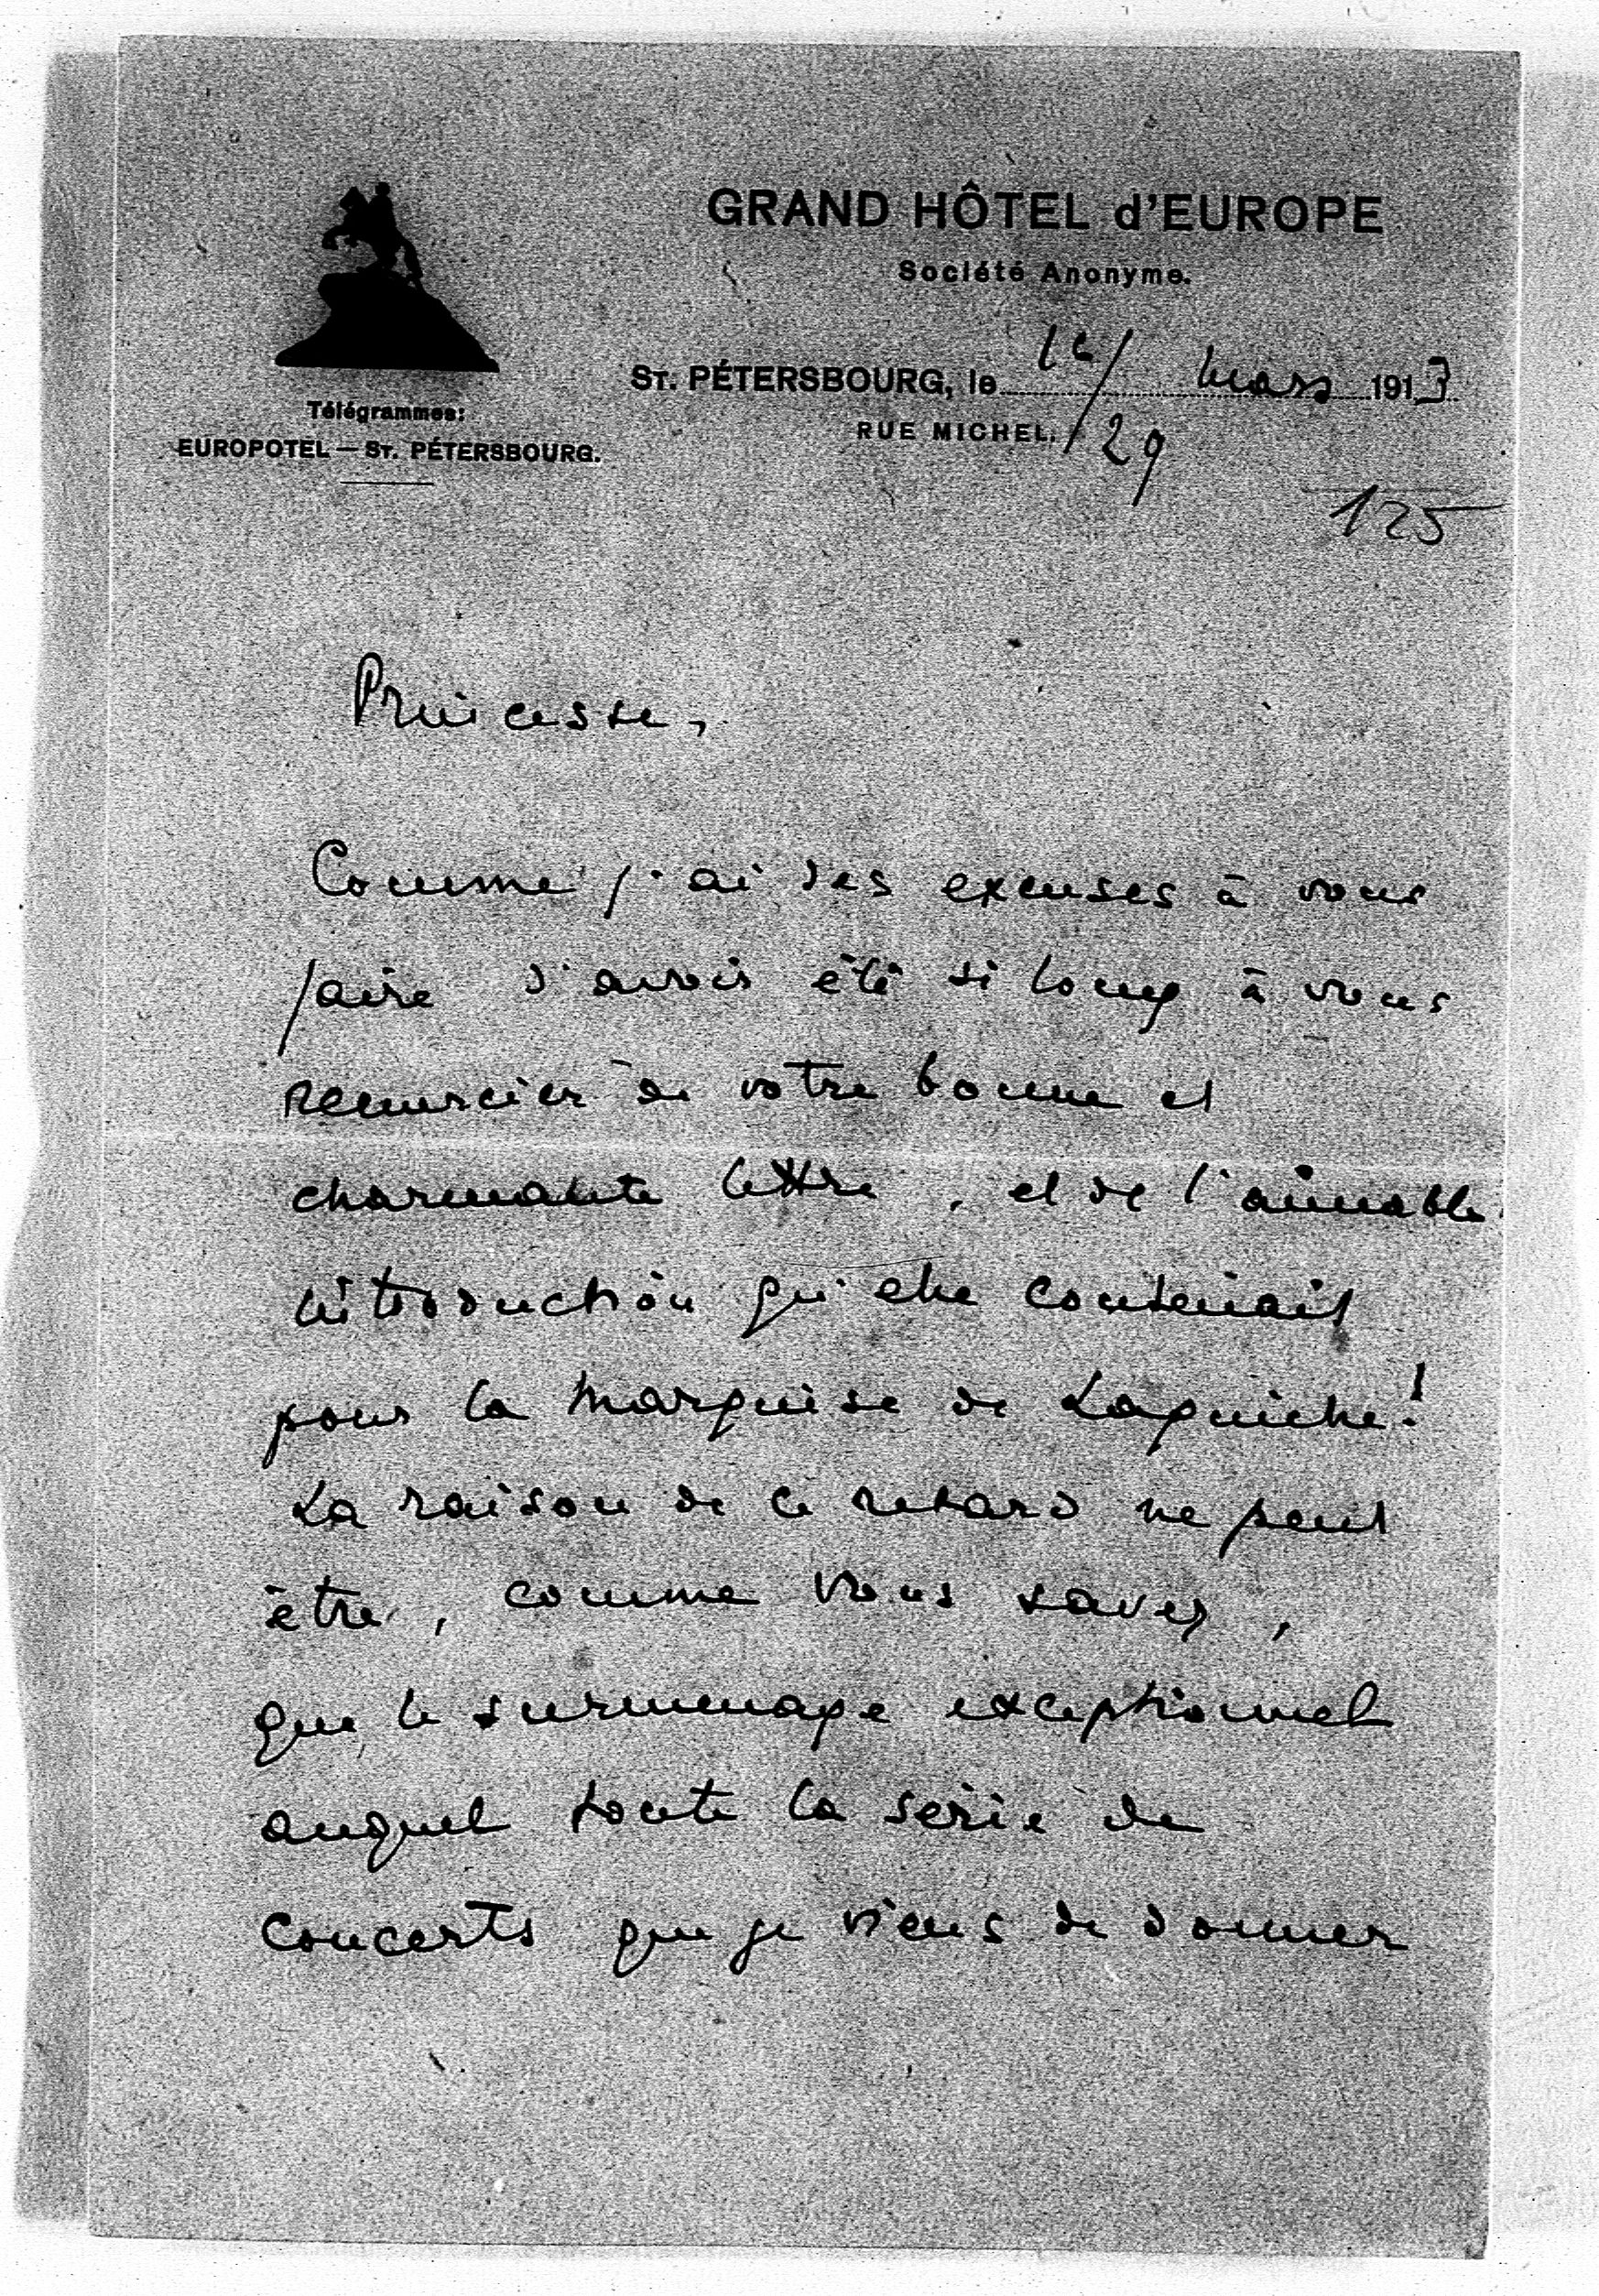 GRAND HÔTEL d'EUROPE
Société Anonyme.
St. PÉTERSBOURG, le 16/29 Mars 1913
RUE MICHEL.
Télégrammes:
EUROPOTEL — St. PÉTERSBOURG.
125
Princesse,
Comme j'ai des excuses à vous
faire d'avoir été si long à vous
remercier de votre bonne et
charmante lettre, et de l'aimable
introduction qu'elle contenait
pour la Marquise de Laguiche!
La raison de ce retard ne peut
être, comme vous savez,
que le surmenage exceptionnel
auquel toute la série de
concerts que je viens de donner